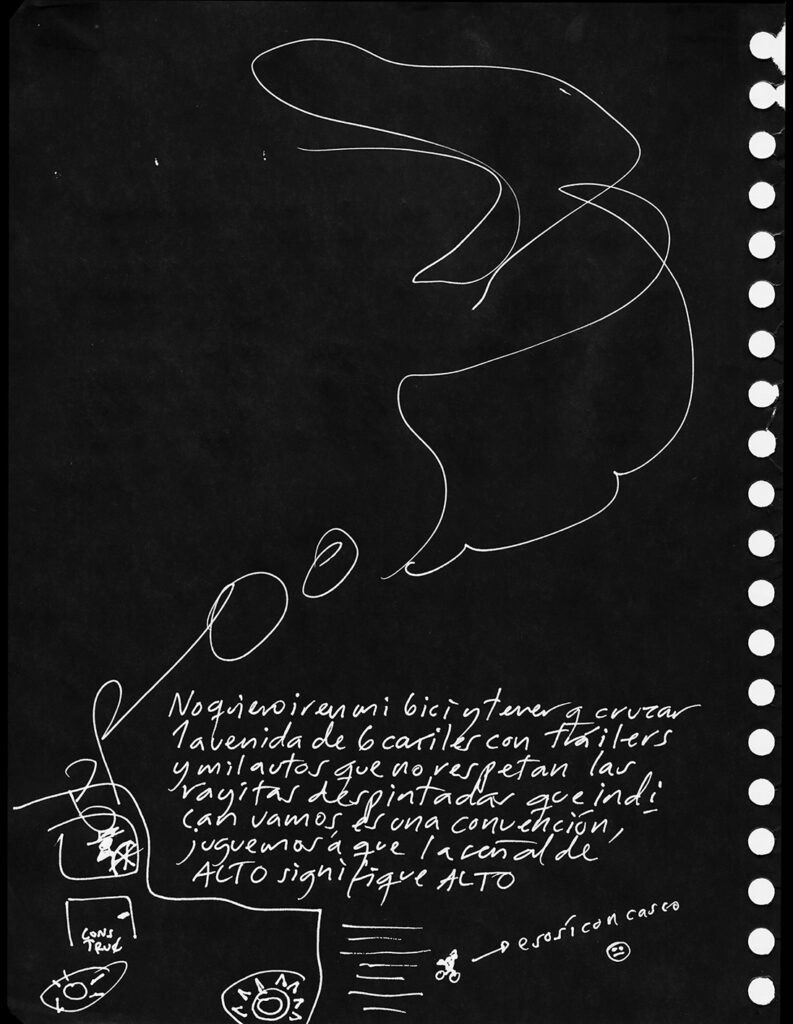 No quiero ir en mi bici y tener q cruzar
1 avenida de 6 carriles con tráilers
y mil autos que no respetan las
rayitas despintadas que indi
can vamos es una convención,
juguemos a que la señal de
ALTO signifique ALTO
CONS
TRUC
eso sí con casco